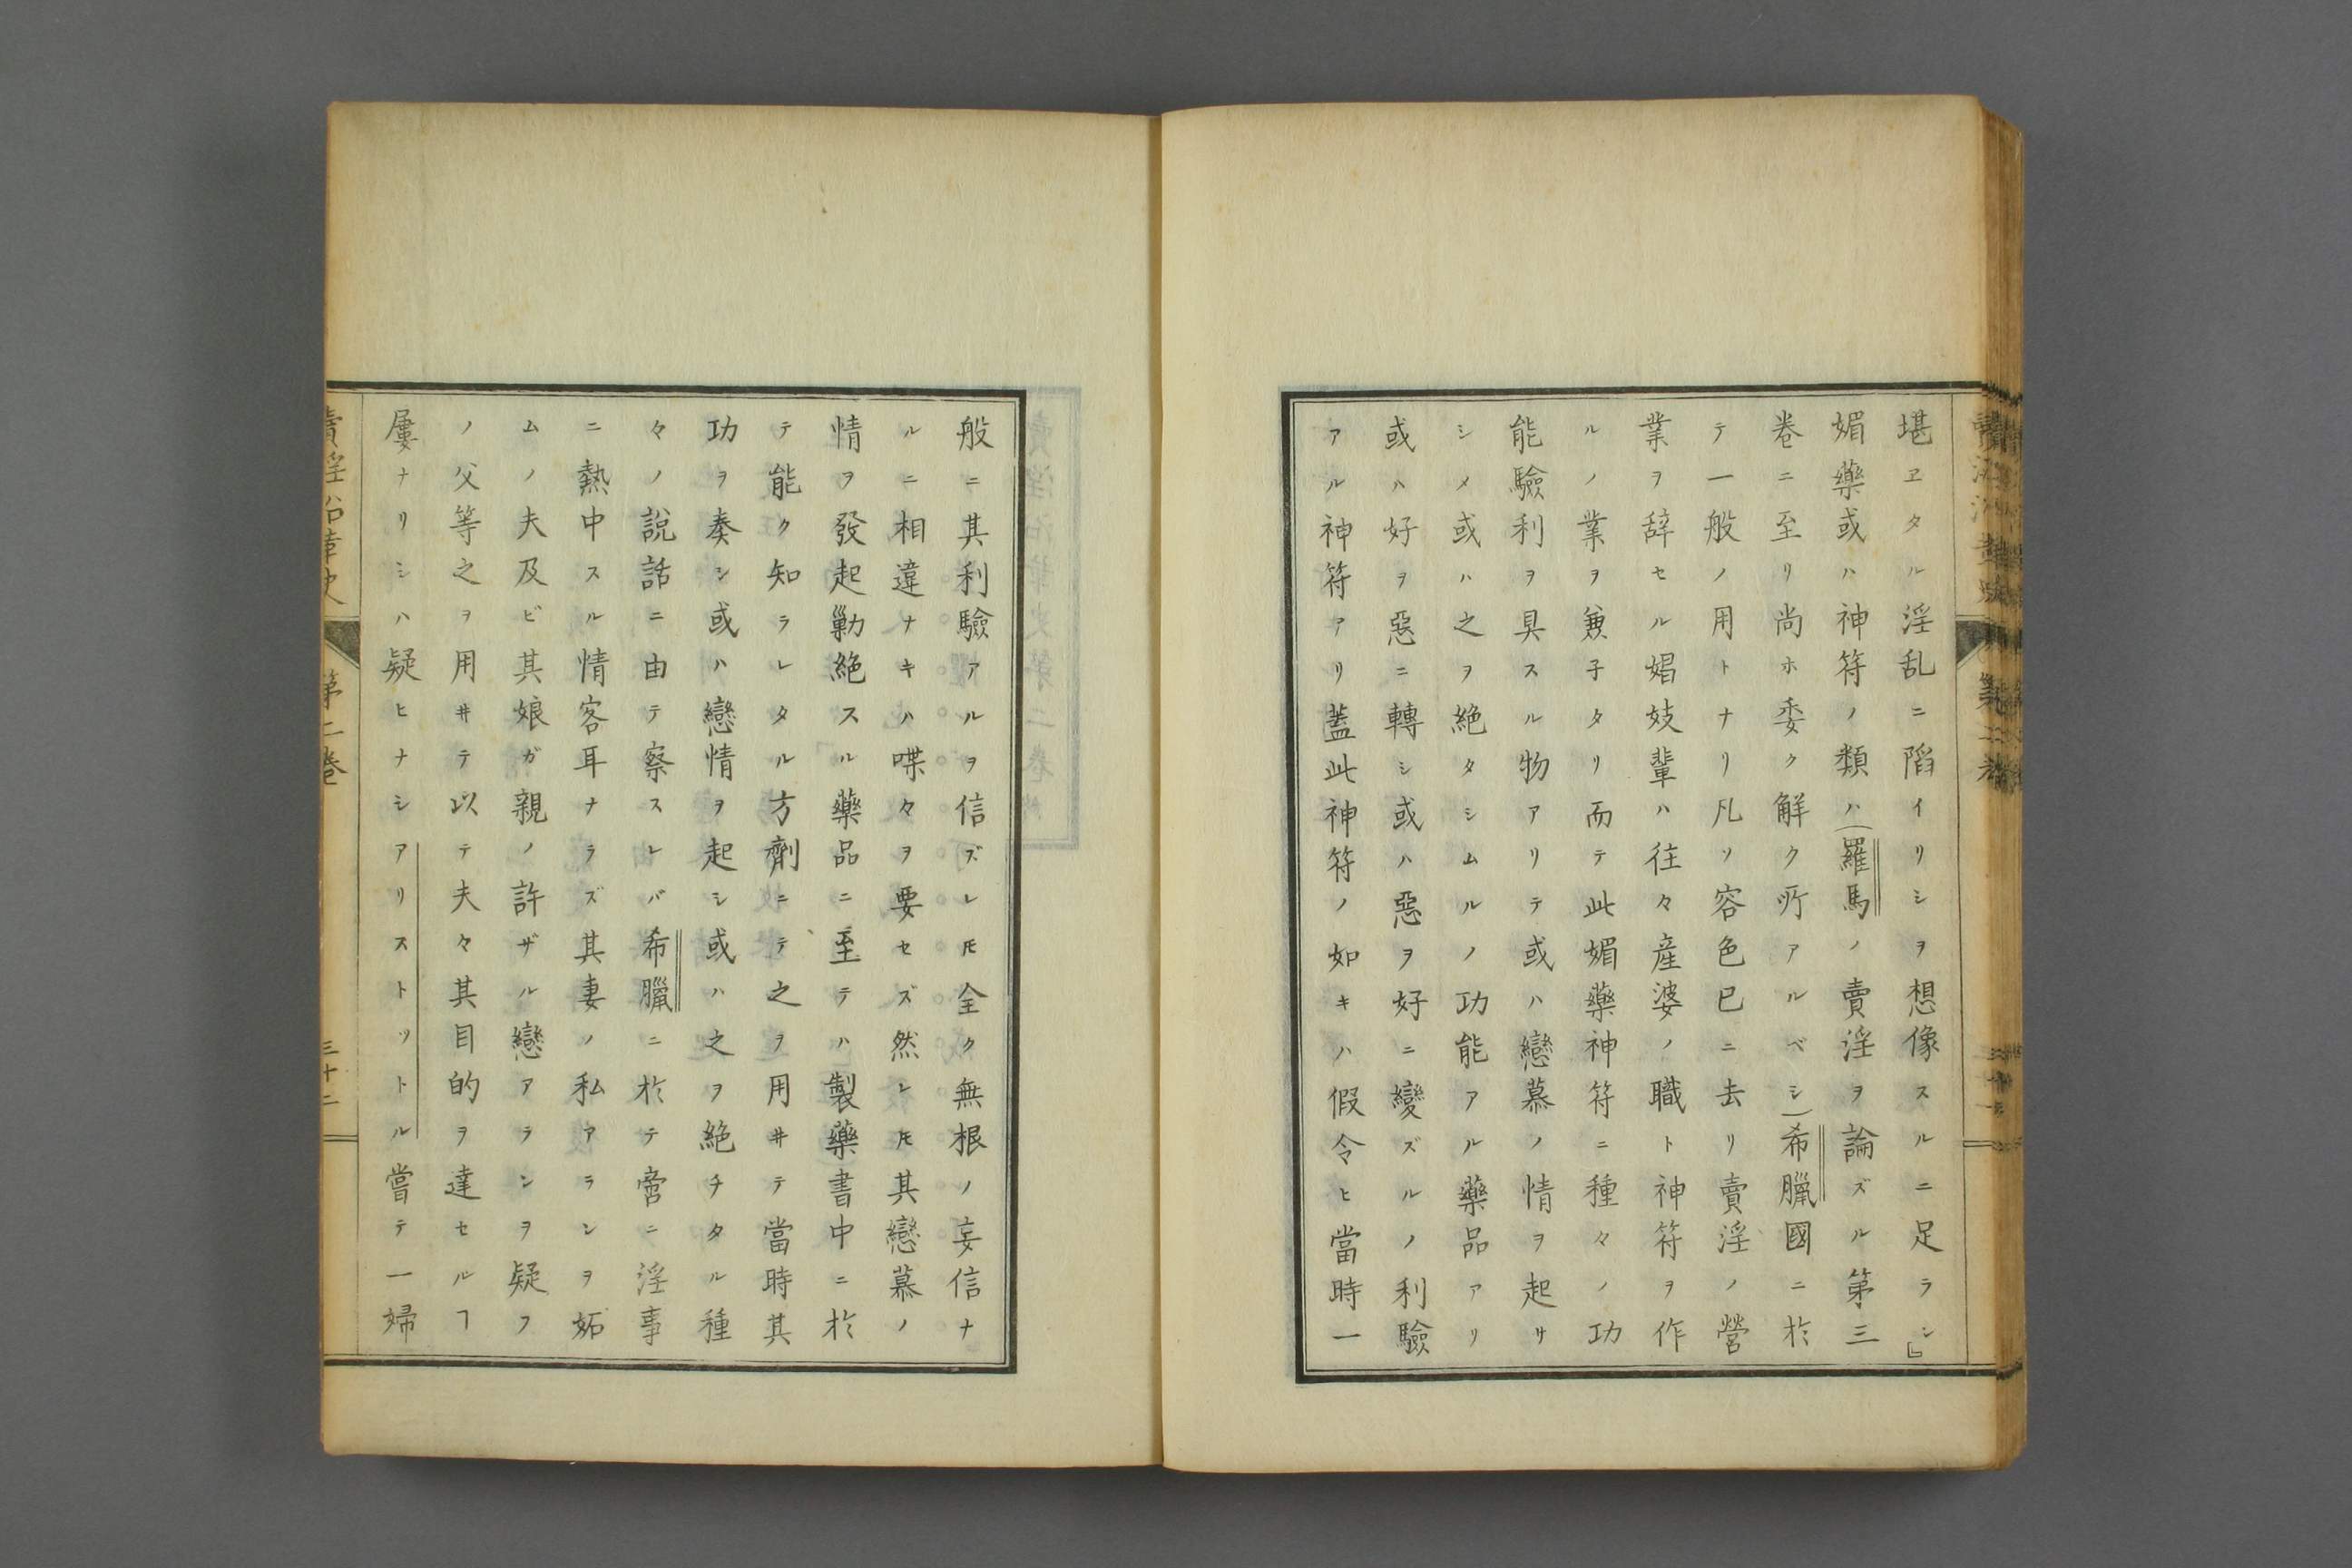 堪ヱタル淫乱ニ陷イリシヲ想像スルニ足ラン』
媚藥或ハ神符ノ類ハ(羅馬ノ賣淫ヲ論ズル第三
卷ニ至リ尚ホ委ク解ク所アルベシ)希臘國ニ於
テ一般ノ用トナリ凡ソ容色已ニ去リ賣淫ノ營
業ヲ辞セル娼妓輩ハ往々産婆ノ職ト神符ヲ作
ルノ業ヲ兼子タリ而テ此媚藥神符ニ種々ノ功
能驗利ヲ具スル物アリテ或ハ戀慕ノ情ヲ起サ
シメ或ハ之ヲ絶タシムルノ功能アル藥品アリ
或ハ好ヲ惡ニ轉シ或ハ惡ヲ好ニ變ズルノ利驗
アル神符アリ蓋此神符ノ如キハ假令ヒ當時一
般ニ其利驗アルヲ信ズレ𪜈全ク無根ノ妄信ナ
ルニ相違ナキハ喋々ヲ要セズ然レ𪜈其戀慕ノ
情ヲ發起勦絶スル藥品ニ至テハ製藥書中ニ於
テ能ク知ラレタル方劑ニテ之ヲ用井テ當時其
功ヲ奏シ或ハ戀情ヲ起シ或ハ之ヲ絶チタル種
々ノ説話ニ由テ察スレバ希臘ニ於テ啻ニ淫事
ニ熱中スル情客耳ナラズ其妻ノ私アランヲ妬
ムノ夫及ビ其娘ガ親ノ許ザル戀アランヲ疑フ
ノ父等之ヲ用井テ以テ夫々其目的ヲ達セルヿ
屢ナリシハ疑ヒナシアリストットル嘗テ一婦
賣淫治革史
第二卷
三十二